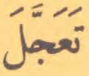 تَعَجَّلَ